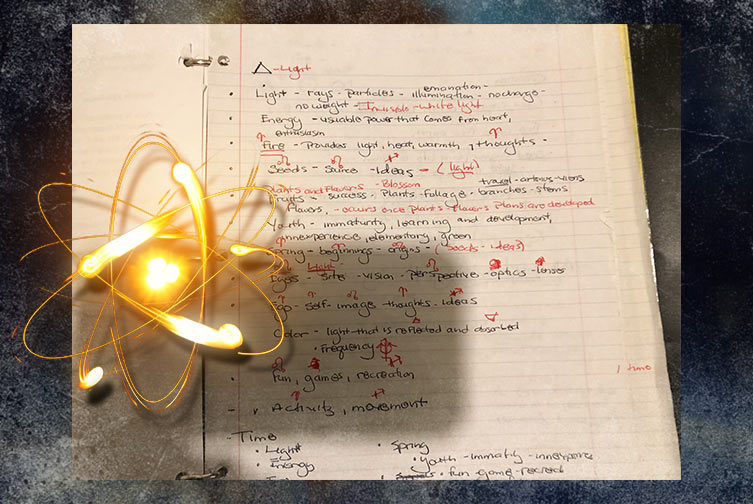 △ - Light
emanation -
• Light - rays - particles - illumination - no charge -
no weight - Invisible - white light
• Energy - usuable power that comes from heat,
enthusiasm
• fire - Provides light, heat, warmth, thoughts -
• Seeds - Source - Ideas - (light)
Plants and Flowers - Blossom
Fruits - success - Plants - foliage - branches - stems
flowers, - occurs once plants flowers Plans are developed
Youth - immaturity, learning and development,
inexperience, elementary, green
Spring - beginnings - origins - (seeds - ideas)
Light
Eyes - site - vision - perspective - optics - lenses
• Ego - self - image, thoughts - ideas
Color - light that is reflected and absorbed
• Frequency
• fun, games, recreation
1 time
- Activity, movement
- Time
• Light
• Energy
• Spring
• Youth -
• fun - game -